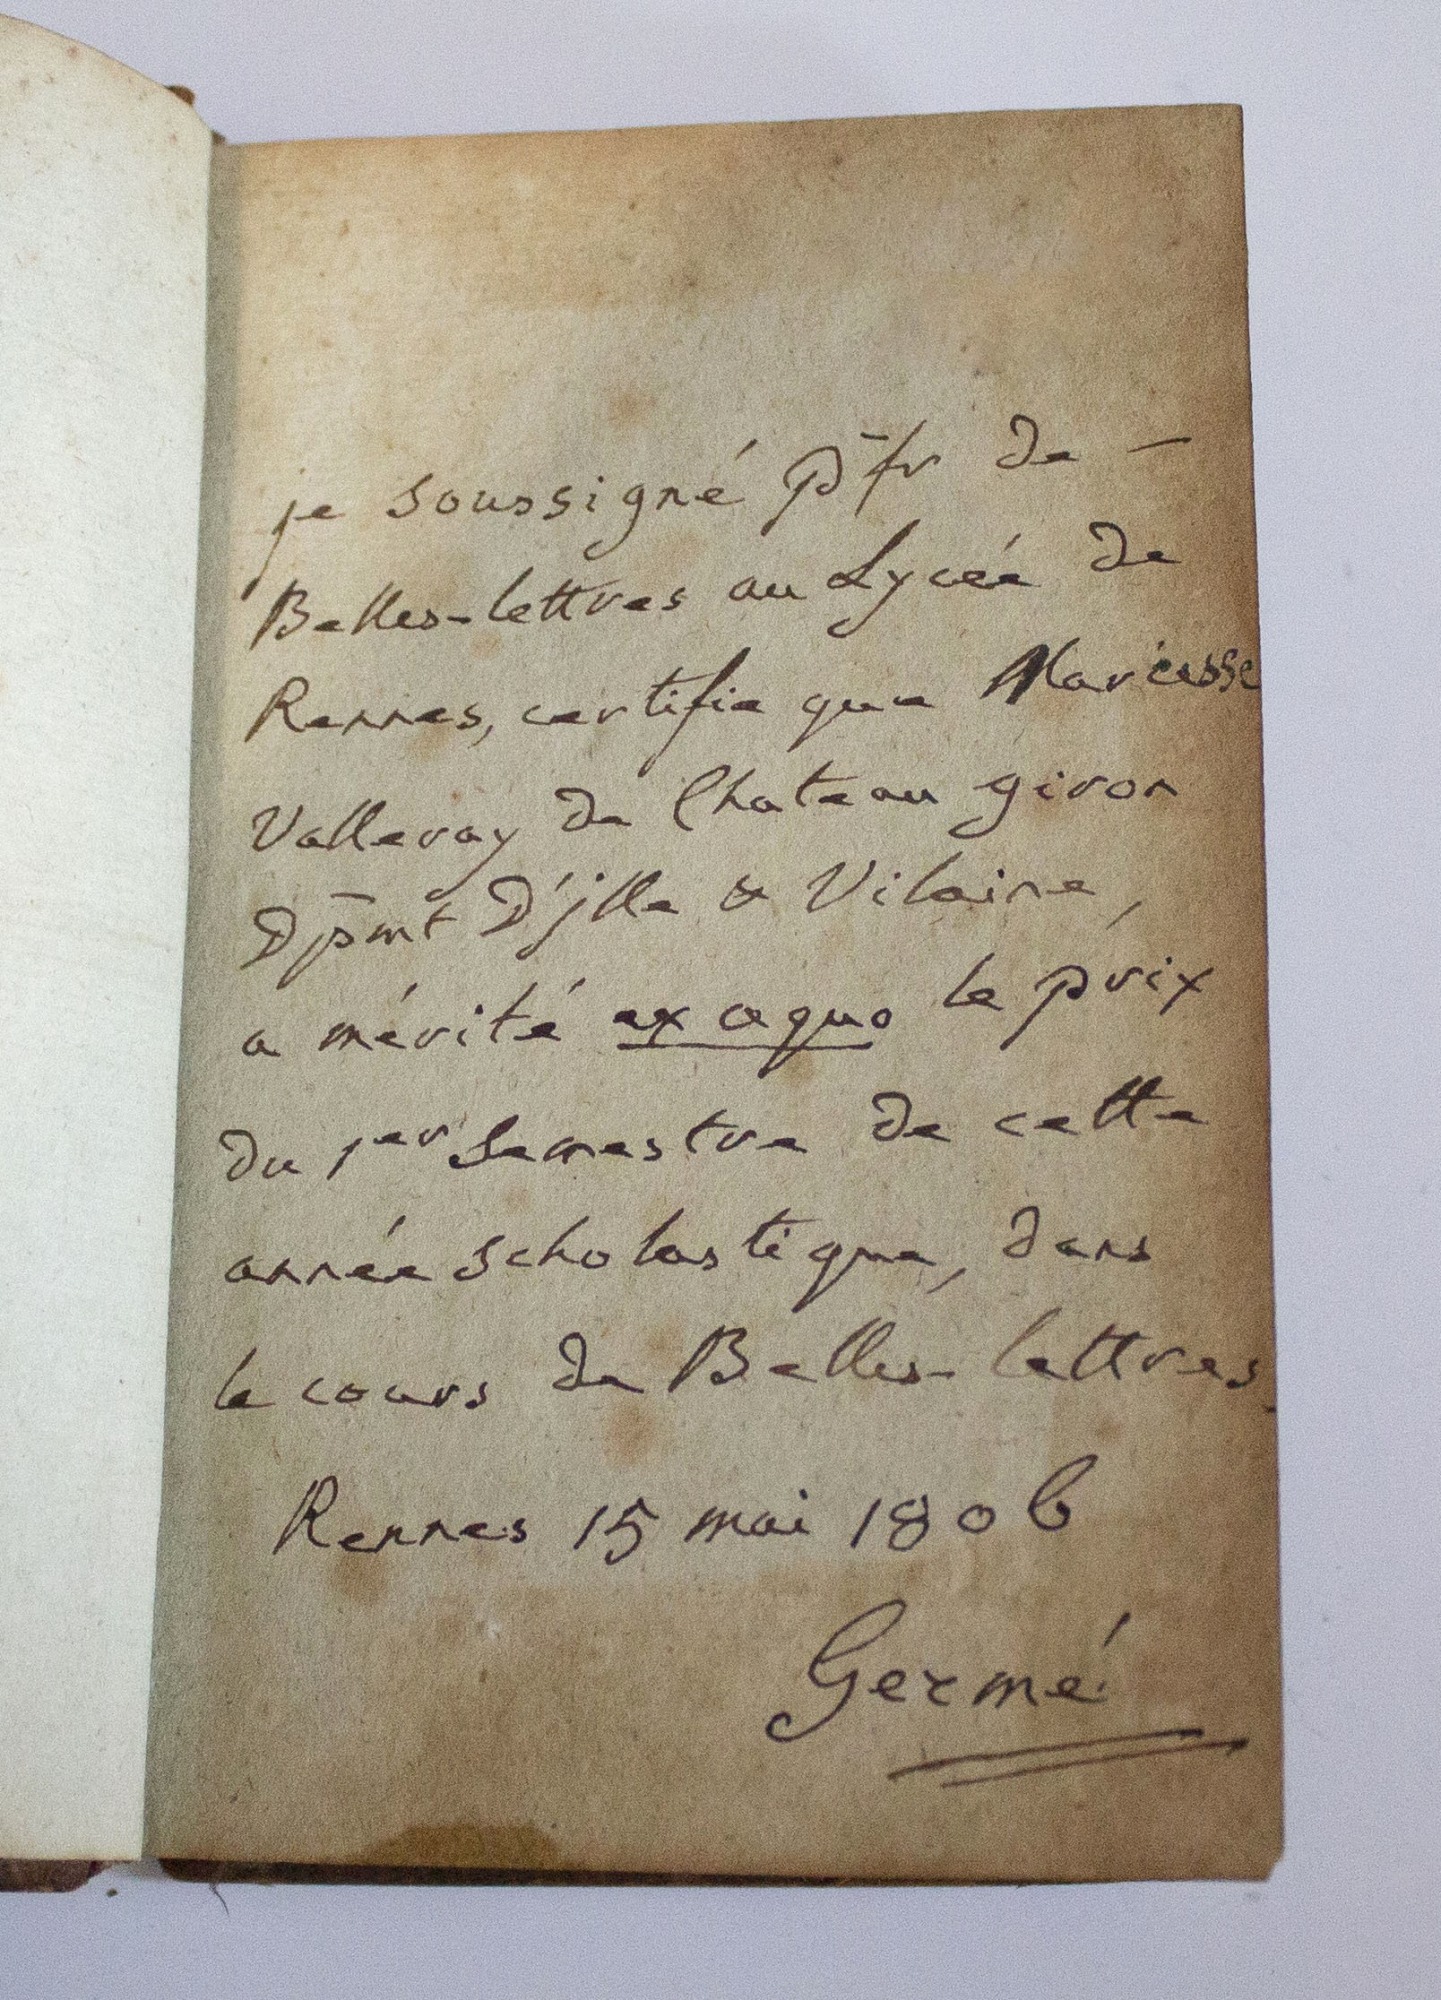 je soussigné p̄fr de —
Belles-lettres au Lycée de
Rennes, certifie que Narcisse
Valleray de Chateau giron
Dp̄mt D'jlle & Vilaine,
a mérité ex æquo le prix
du 1er Semestre de cette
année scholastique, dans
le cours de Belles-lettres.
Rennes 15 mai 1806
Germé